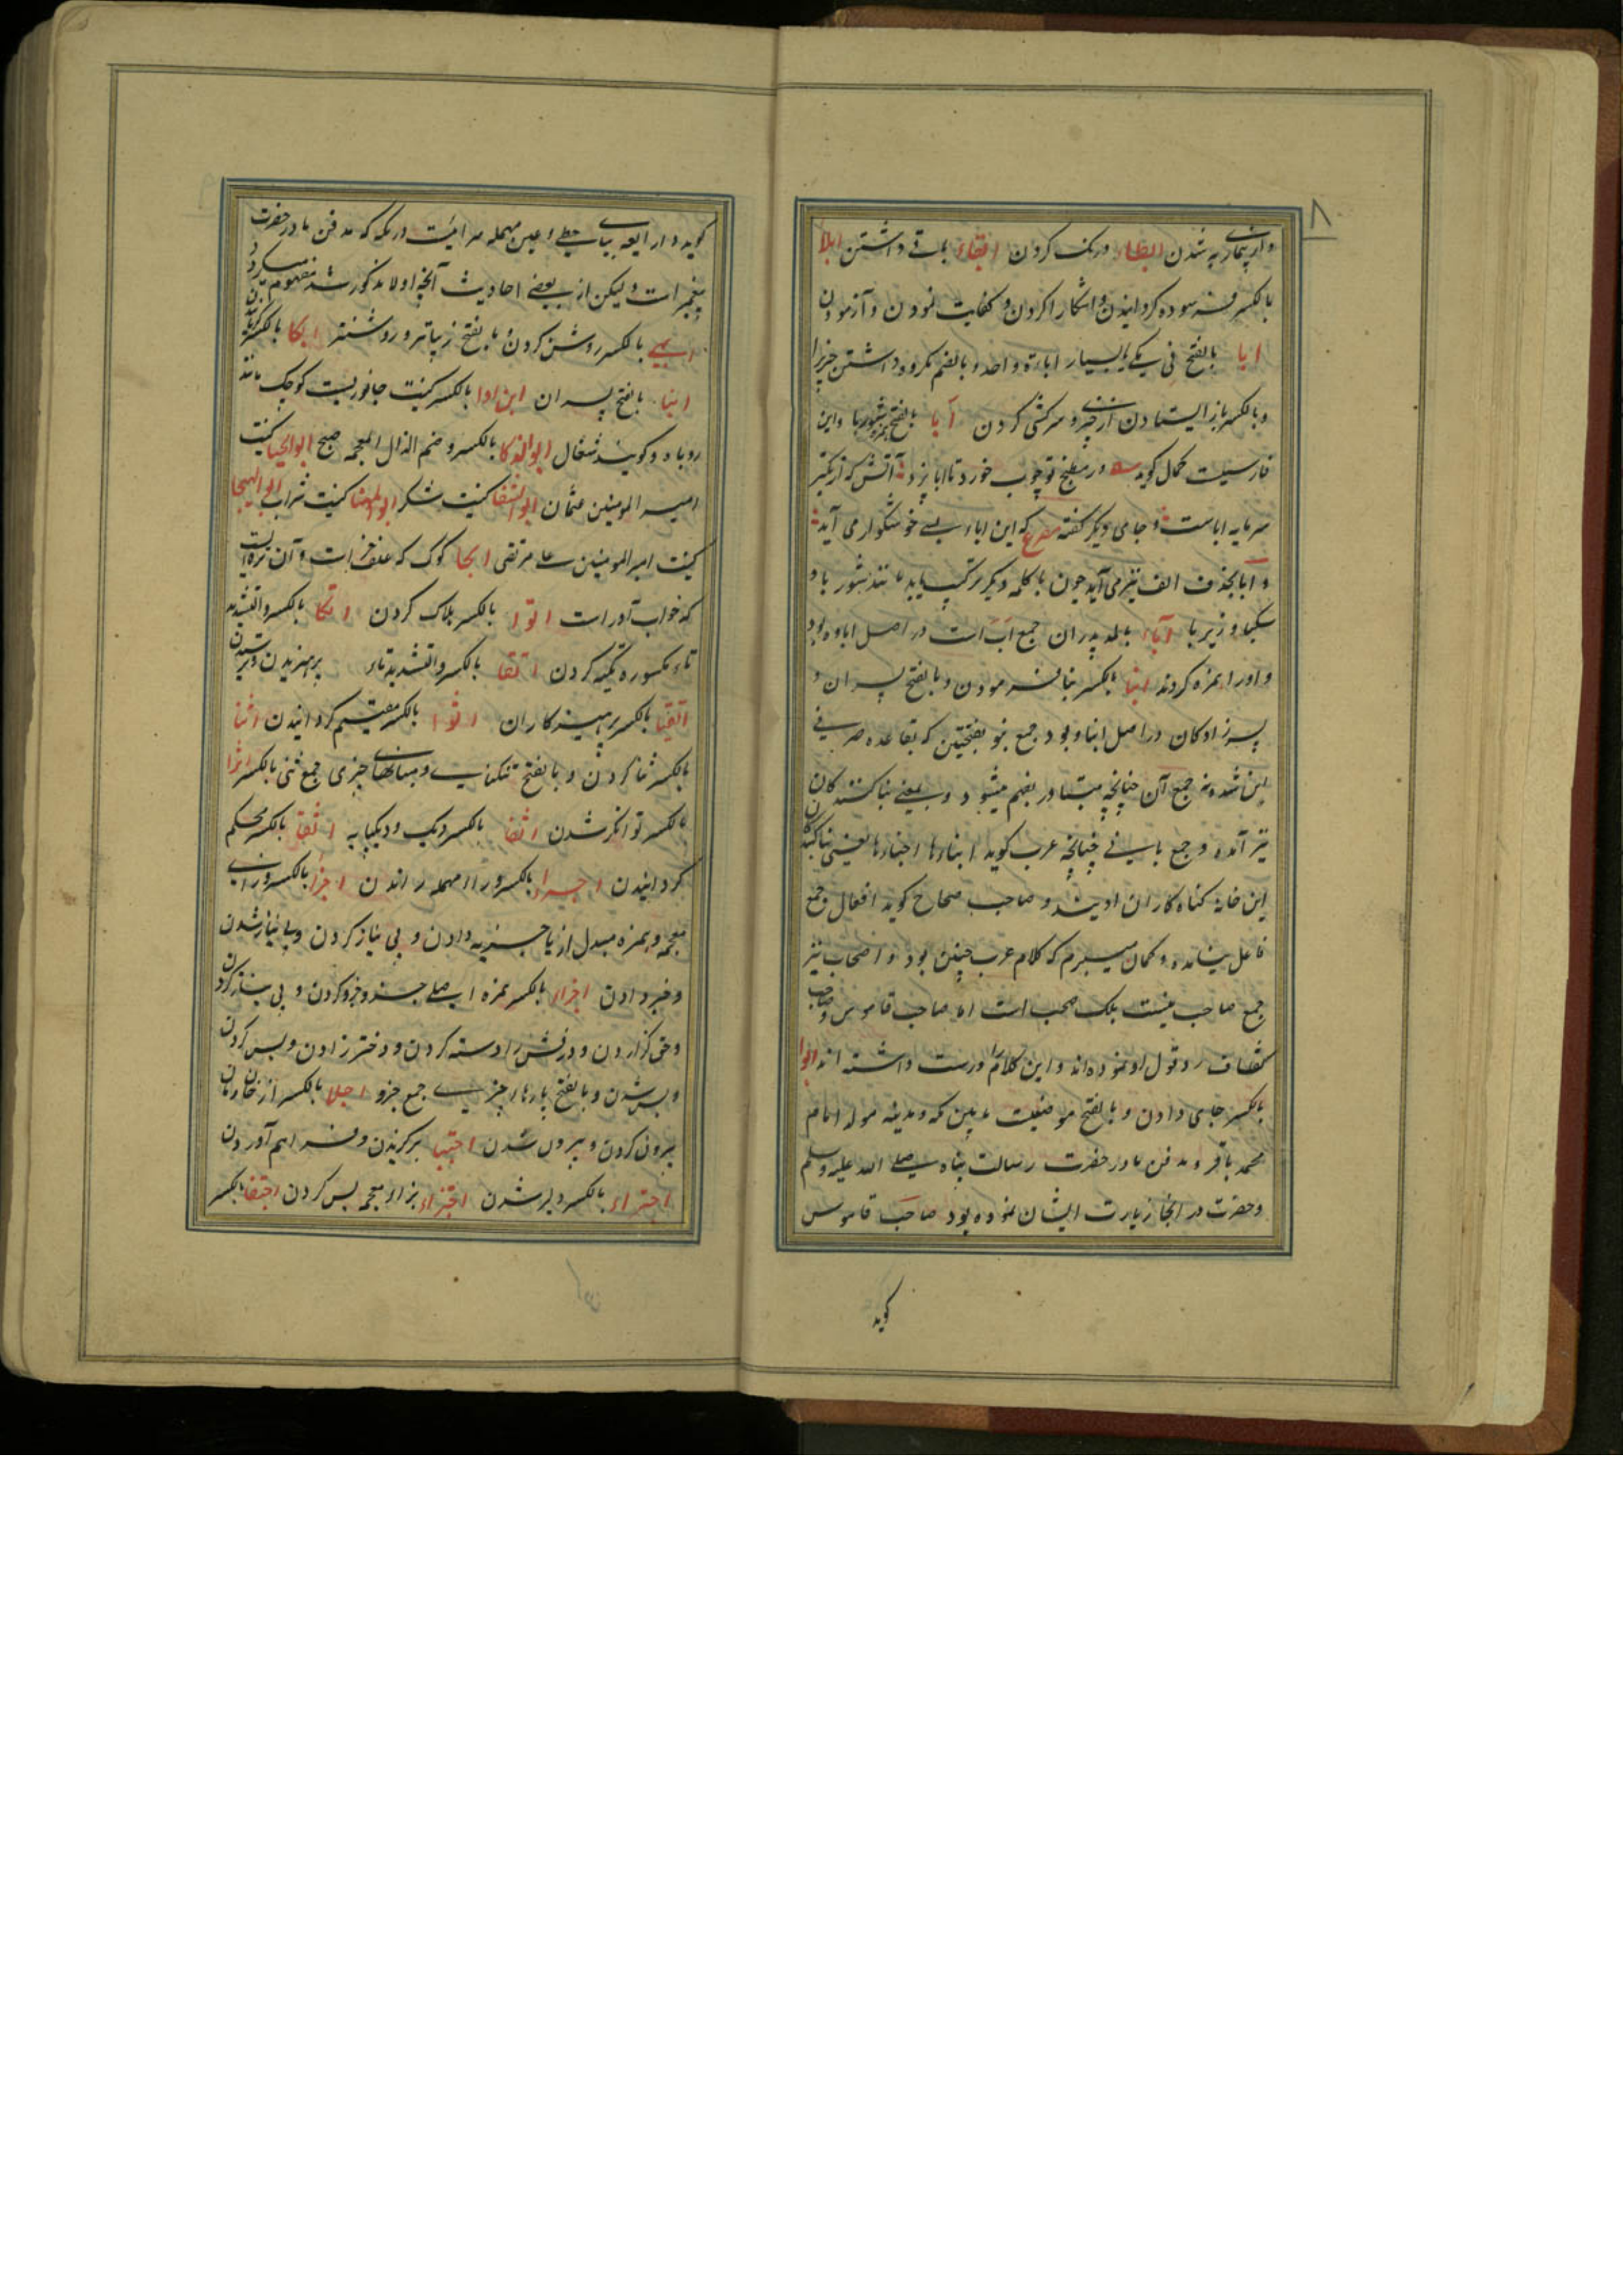 ۸
و از بیماری به شدن ابطاء درنک کردن ابقاء باقے داشتن ابلا
بالکسر فرسوده کردانیدن و اشکارا کردن و کفایت نمودن و آزمودن
ابا بالفتح نی یکے یا بسیار اباءة واحد و بالضم مکروه داشتن چیزیرا
و بالکسر باز ایستادن از چیزے و سرکشی کردن آبا بالفتح شوربا و این
فارسیست کمال کوید در مطبخ تو چوب خورد تا ابا پزد آتش که از
سرمایه اباست و جامی دیکر کفته مصرع که این اباء بسے خوشکوار می آید
و ابا بحذف الف نیز می آید چون با کلمه دیکر ترکیب یابد مانند شوربا و
سکبا و زیربا آباء بالمد پدران جمع اب است در اصل اباو بود
واو را همزه کردند ابنا بالکسر بنا فرمودن و بالفتح پسران و
پسرزادکان در اصل ابناو بود جمع بنو بفتحتین که بقاعده صرفے
ابن شده نه جمع آن چنانچه متبادر بفهم میشود و بمعنے بنا کنندکان
نیز آمده و جمع بانے چنانچه عرب کوید ابناءها اجناءها یعنی بنا کنندکان
این خانه کناه کاران اویند و صاحب صحاح کوید افعال جمع
فاعل نیامده و کمان میبرم که کلام عرب چنین بود و اصحاب نیز
جمع صاحب نیست بلکه صحب است اما صاحب قاموس و صاحب
کشاف رد قول او نموده اند و این کلام را درست داشته اند ابوا
بالکسر جای دادن و بالفتح موضعیست مابین مکه و مدینه مولد امام
محمد باقر و مدفن مادر حضرت رسالت پناه صلے الله علیه و سلم
و حضرت در انجا زیارت ایشان نموده بود صاحب قاموس
کوید
کوید دار ایعه بیاے حطے و عین مهمله سرائیست در مکه که مدفن مادر حضرت
پیغمبر است ولیکن از بعضے احادیث آنچه اولا مذکور شد مفهوم میکردد
ابهے بالکسر روشن کردن و بالفتح زیباتر و روشنتر ابکا بالکسر کریانیدن
ابنا بالفتح پسران ابن ادا بالکسر کنیت جانوریست کوچک مانند
روباه و کویند شغال ابوالذکا بالکسر و ضم الذال المعجمه صبح ابوالحیا کنیت
امیر المومنین عثمان ابوالشفا کنیت شکر ابوالمهنا کنیت شراب ابوالهیجا
کنیت امیر المومنین علے مرتضی ابجا کوک که علف خر است و آن تره ایست
که خواب آور است اتوا بالکسر هلاک کردن اتکا بالکسر و التشدید
تاء مکسوره تکیه کردن اتقا بالکسر و التشدید تاء پرهیزیدن و ترسیدن
اتقیا بالکسر پرهیزکاران اثوا بالکسر مقیم کردانیدن اثنا
بالکسر ثنا کردن و بالفتح شکنهاے و میانهاے چیزی جمع ثنی بالکسر اثرا
بالکسر توانکر شدن اثفا بالکسر دیک و دیکپایه اتقا بالکسر محکم
کردانیدن اجرا بالکسر و راء مهمله راندن اجزا بالکسر و زاے
معجمه و همزه مبدل از یا جزیه دادن و بی نیاز کردن و بی نیاز شدن
و خبر دادن اجزاء بالکسر همزه اصلے جزو جزو کردن و بی نیاز کردن
و حق کزاردن و درفش را دسته کردن و دختر زادن و بس کردن
و بس شدن و بالفتح پارهاء چیزے جمع جزو اجلا بالکسر از خان و مان
بیرون کردن و بیرون شدن اجتبا برکزیدن و فراهم آوردن
اجتراء بالکسر دلیر شدن اجتزاء بزاء معجمه بس کردن اجتفا بالکسر